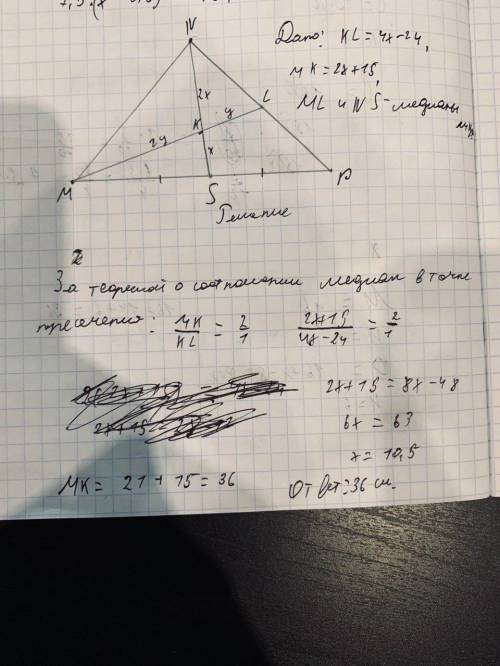 N
Дано: KL = 4x-24,
MK = 2x+15,
ML и NS - медианы
2x
L
y
K
2y
x
M
S
P
Решение
За теоремой о соотношении медиан в точке
пересечения: MK/KL = 2/1
2x+15/4x-24 = 2/1
2x+15 = 8x-48
6x = 63
x = 10,5
MK = 21 + 15 = 36
Ответ: 36 см.